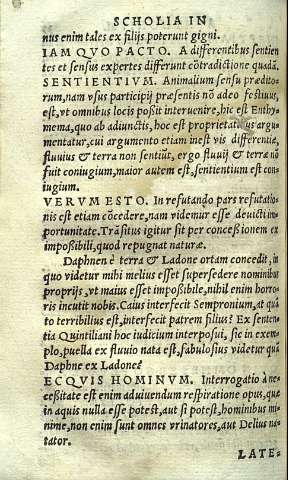 SCHOLIA IN
nus enim tales ex filijs poterunt gigni.
IAM QVO PACTO. A differentibus sentien
tes et sensus expertes differunt cõtradictione quadã.
SENTIENTIVM. Animalium sensu prædito-
rum, nam vsus participij præsentis nõ adeo festiuus
est, vt omnibus locis possit interuenire, hic est Enthy-
mema, quo ab adiunctis, hoc est proprietatibus argu-
mentatur, cui argumento etiam inest vis differentiæ,
fluuius & terra non sentiũt, ergo fluuij & terræ nõ
fuit coniugium, maior autem est, sentientium est con-
iugium.
VERVM ESTO. In refutando pars refutatio-
nis est etiam cõcedere, nam videmur esse deuicti im-
portunitate. Trãsitus igitur sit per concessionem ex
impossibili, quod repugnat naturæ.
Daphnen è terra & Ladone ortam concedit, in
quo videtur mihi melius esset supersedere nominibus
proprijs, vt maius esset impossibile, nihil enim horro-
ris incutit nobis. Caius interfecit Sempronium, at quã
to terribilius est, interfecit patrem filius? Ex senten-
tia Quintiliani hoc iudicium interposui, sic in exem-
plo, puella ex fluuio nata est, fabulosius videtur quã
Daphne ex Ladone?
ECQVIS HOMINVM. Interrogatio à ne-
cessitate est enim ad viuendum respiratione opus, quæ
in aquis nulla esse potest, aut si potest, hominibus mi-
nime, non enim sunt omnes vrinatores, aut Delius na-
tator.
LATE-